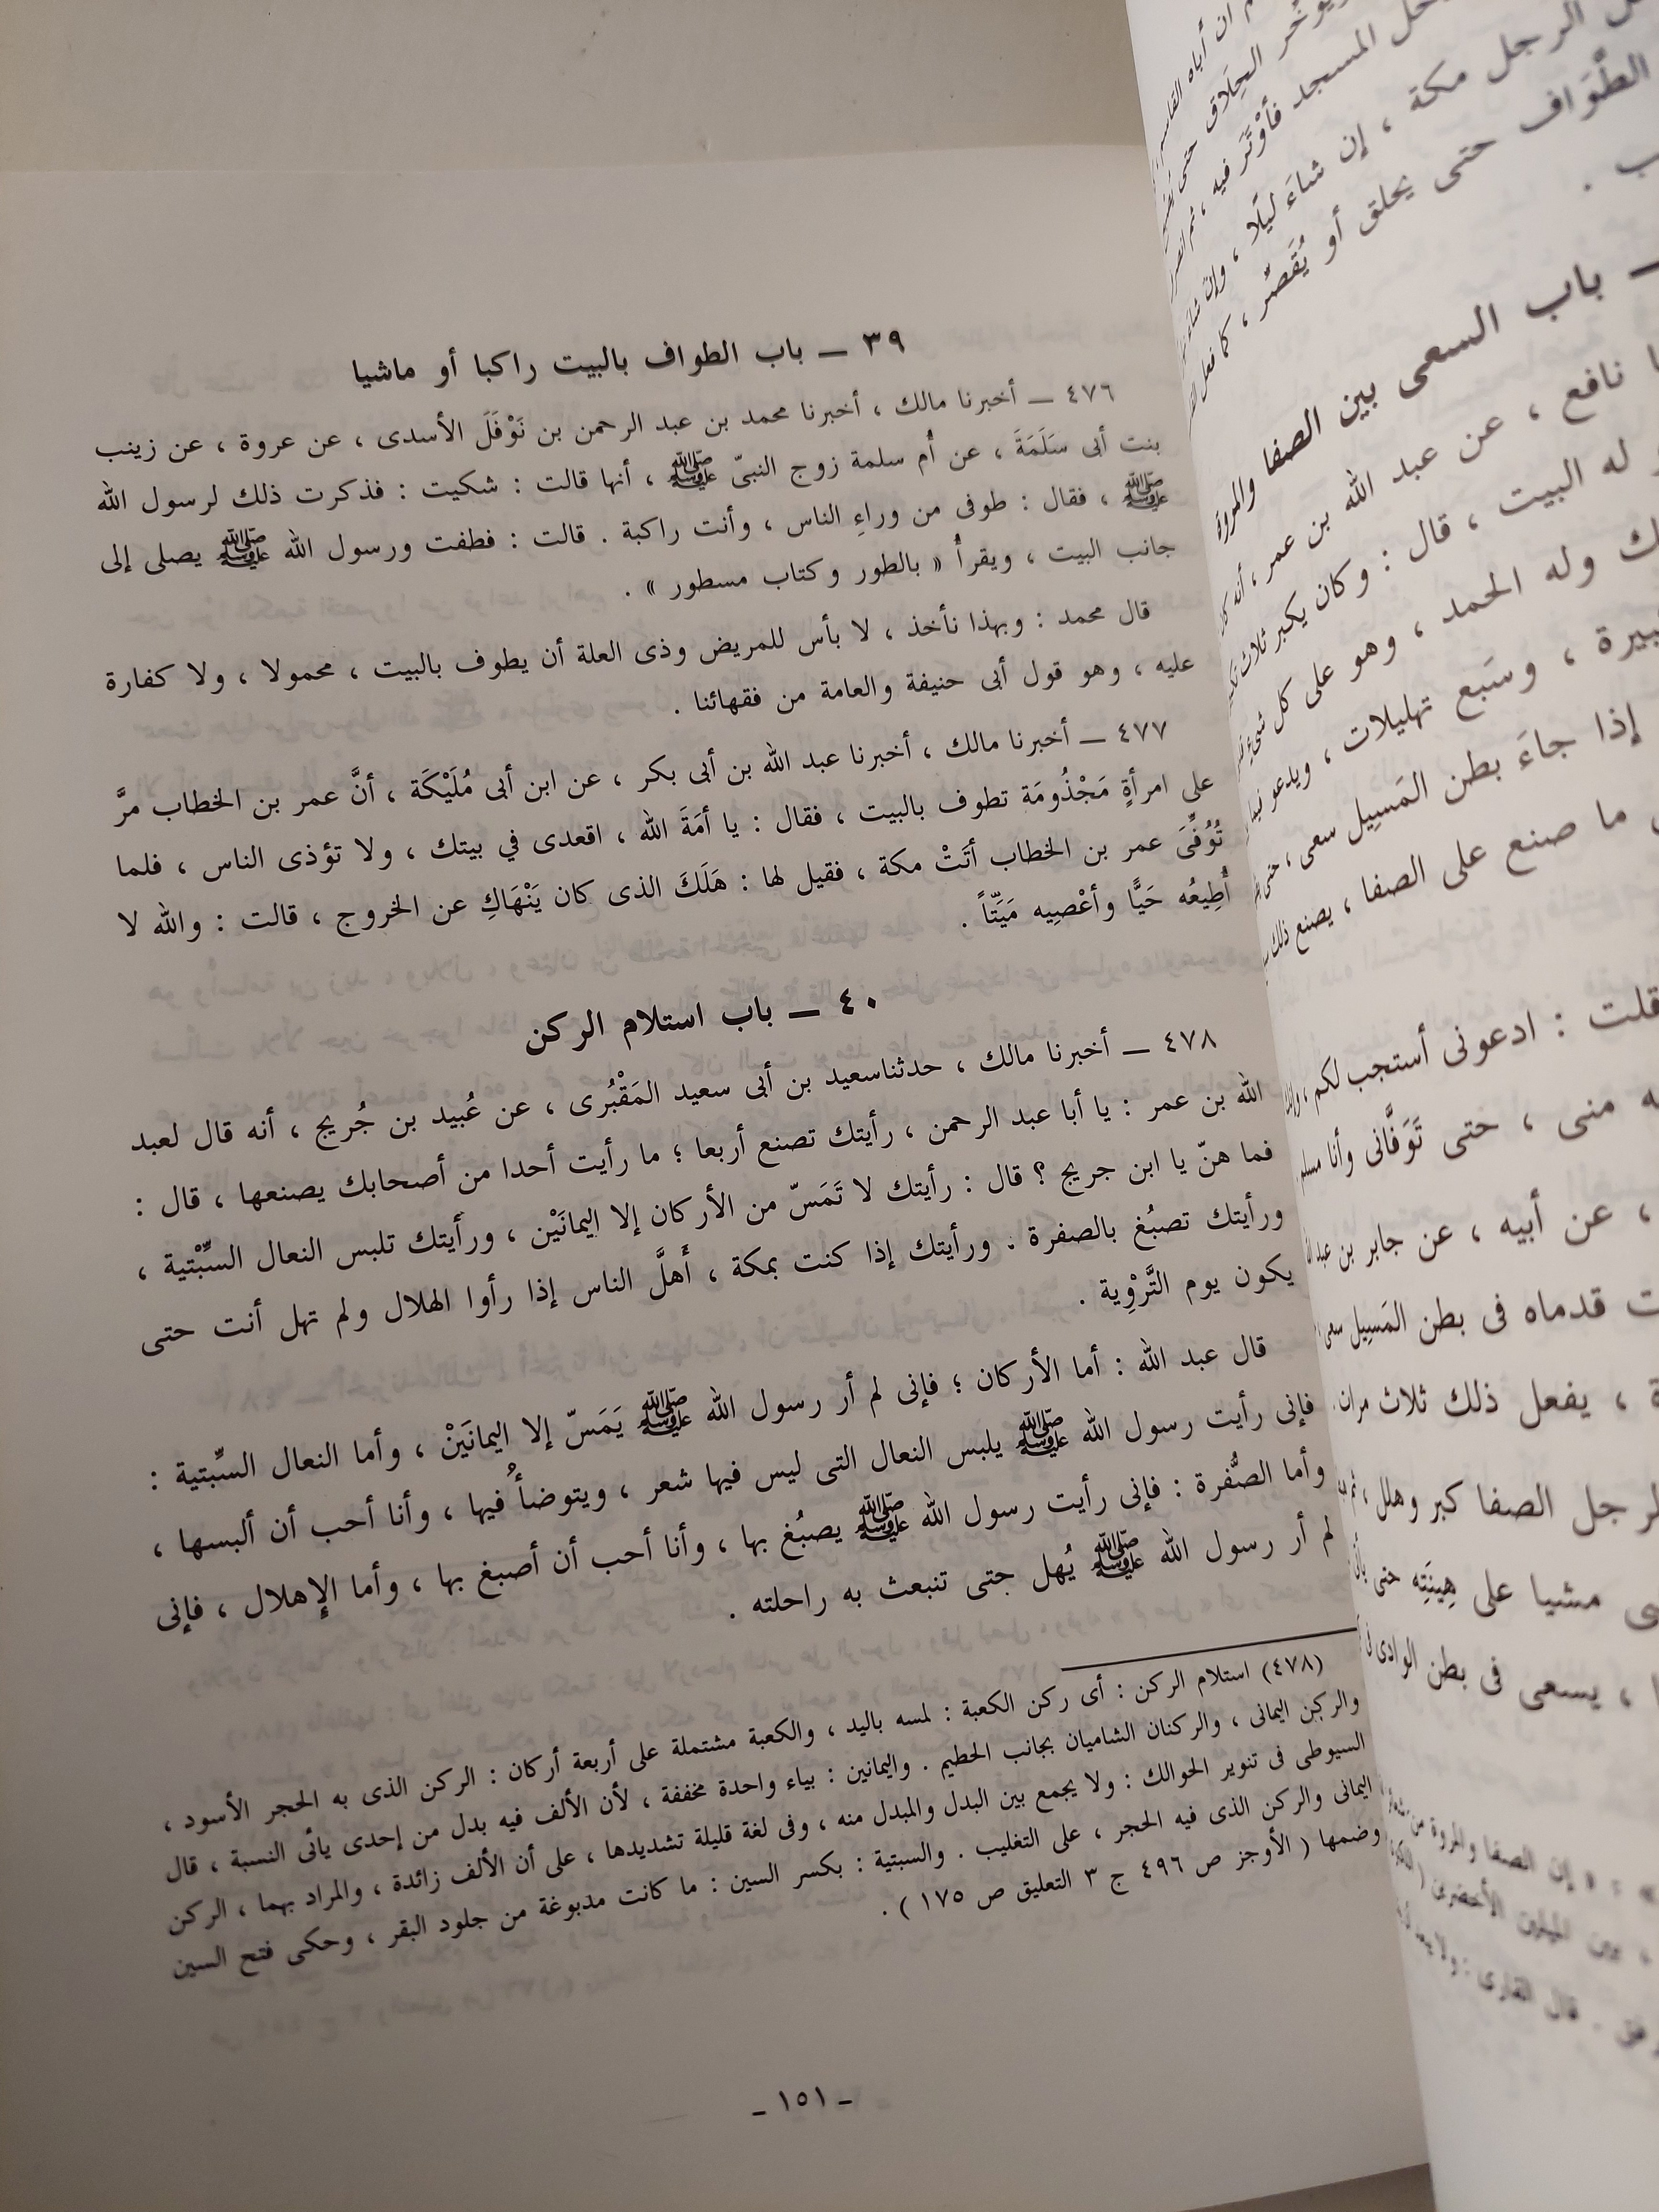 ٣٩ — باب الطواف بالبيت راكبا أو ماشيا
٤٧٦ — أخبرنا مالك ، أخبرنا محمد بن عبد الرحمن بن نَوْفَلَ الأسدى ، عن عروة ، عن زينب
بنت أبى سَلَمَةَ ، عن أُم سلمة زوج النبىّ ﷺ ، أنها قالت : شكيت : فذكرت ذلك لرسول الله
ﷺ ، فقال : طوفى من وراءِ الناس ، وأنت راكبة . قالت : فطفت ورسول الله ﷺ يصلى إلى
جانب البيت ، ويقرأُ « بالطور وكتاب مسطور » .
قال محمد : وبهذا نأخذ ، لا بأس للمريض وذى العلة أن يطوف بالبيت ، محمولا ، ولا كفارة
عليه ، وهو قول أبى حنيفة والعامة من فقهائنا .
٤٧٧ — أخبرنا مالك ، أخبرنا عبد الله بن أبى بكر ، عن ابن أبى مُلَيْكَة ، أنَّ عمر بن الخطاب مرَّ
على امرأةٍ مَجْذُومَة تطوف بالبيت ، فقال : يا أمَةَ الله ، اقعدى في بيتك ، ولا تؤذى الناس ، فلما
تُوُفِّىَ عمر بن الخطاب أتَتْ مكة ، فقيل لها : هَلَكَ الذى كان يَنْهَاكِ عن الخروج ، قالت : والله لا
أُطِيعُه حَيًّا وأعْصِيه مَيِّتاً .
٤٠ — باب استلام الركن
٤٧٨ — أخبرنا مالك ، حدثناسعيد بن أبى سعيد المَقْبُرى ، عن عُبيد بن جُريج ، أنه قال لعبد
الله بن عمر : يا أبا عبد الرحمن ، رأيتك تصنع أربعا ؛ ما رأيت أحدا من أصحابك يصنعها ، قال :
فما هنّ يا ابن جريج ؟ قال : رأيتك لا تَمَسّ من الأركان إلا اليمانَيْن ، ورأيتك تلبس النعال السِّبْتية ،
ورأيتك تصبُغ بالصفرة . ورأيتك إذا كنت بمكة ، أَهلَّ الناس إذا رأوا الهلال ولم تهل أنت حتى
يكون يوم التَّرْوِية .
قال عبد الله : أما الأركان ؛ فإنى لم أر رسول الله ﷺ يَمَسّ إلا اليمانَيَنْ ، وأما النعال السِّبتية :
فإنى رأيت رسول الله ﷺ يلبس النعال التى ليس فيها شعر ، ويتوضأُ فيها ، وأنا أحب أن ألبسها ،
وأما الصُّفرة : فإنى رأيت رسول الله ﷺ يصبُغ بها ، وأنا أحب أن أصبغ بها ، وأما الإهلال ، فإنى
لم أر رسول الله ﷺ يُهل حتى تنبعث به راحلته .
(٤٧٨) استلام الركن : أى ركن الكعبة : لمسه باليد ، والكعبة مشتملة على أربعة أركان : الركن الذى به الحجر الأسود ،
والركن اليمانى ، والركنان الشاميان بجانب الحطيم . واليمانين : بياء واحدة مخففة ، لأن الألف فيه بدل من إحدى يائى النسبة ، قال
السيوطى فى تنوير الحوالك : ولا يجمع بين البدل والمبدل منه ، وفى لغة قليلة تشديدها ، على أن الألف زائدة ، والمراد بهما ، الركن
اليمانى والركن الذى فيه الحجر ، على التغليب . والسبتية : بكسر السين : ما كانت مدبوغة من جلود البقر ، وحكى فتح السين
وضمها ( الأوجز ص ٤٩٦ ج ٣ التعليق ص ١٧٥ ) .
ـ ١٥١ ـ
الرجل مكة ، إن شاءَ ليلًا ،
الطَّوَاف حتى يحلق أو يُقَصّر ،
— باب السعى بين الصفا والمروة
نافع ، عن عبد الله بن عمر ،
له البيت ، قال : وكان يكبر ثلاث
وله الحمد ، وهو على كل
، وسَبع تهليلات ، ويدعو
إذا جاءَ بطن المَسِيل سعى ،
ما صنع على الصفا ، يصنع ذلك
قلت : ادعونى أستجب لكم ،
منى ، حتى تَوَفَّانى وأنا مسلم
، عن أبيه ، عن جابر بن
قدماه فى بطن المَسِيل
، يفعل ذلك ثلاث
الصفا كبر وهلل ،
مشيا على هِينَتِه حتى
، يسعى فى بطن الوادى